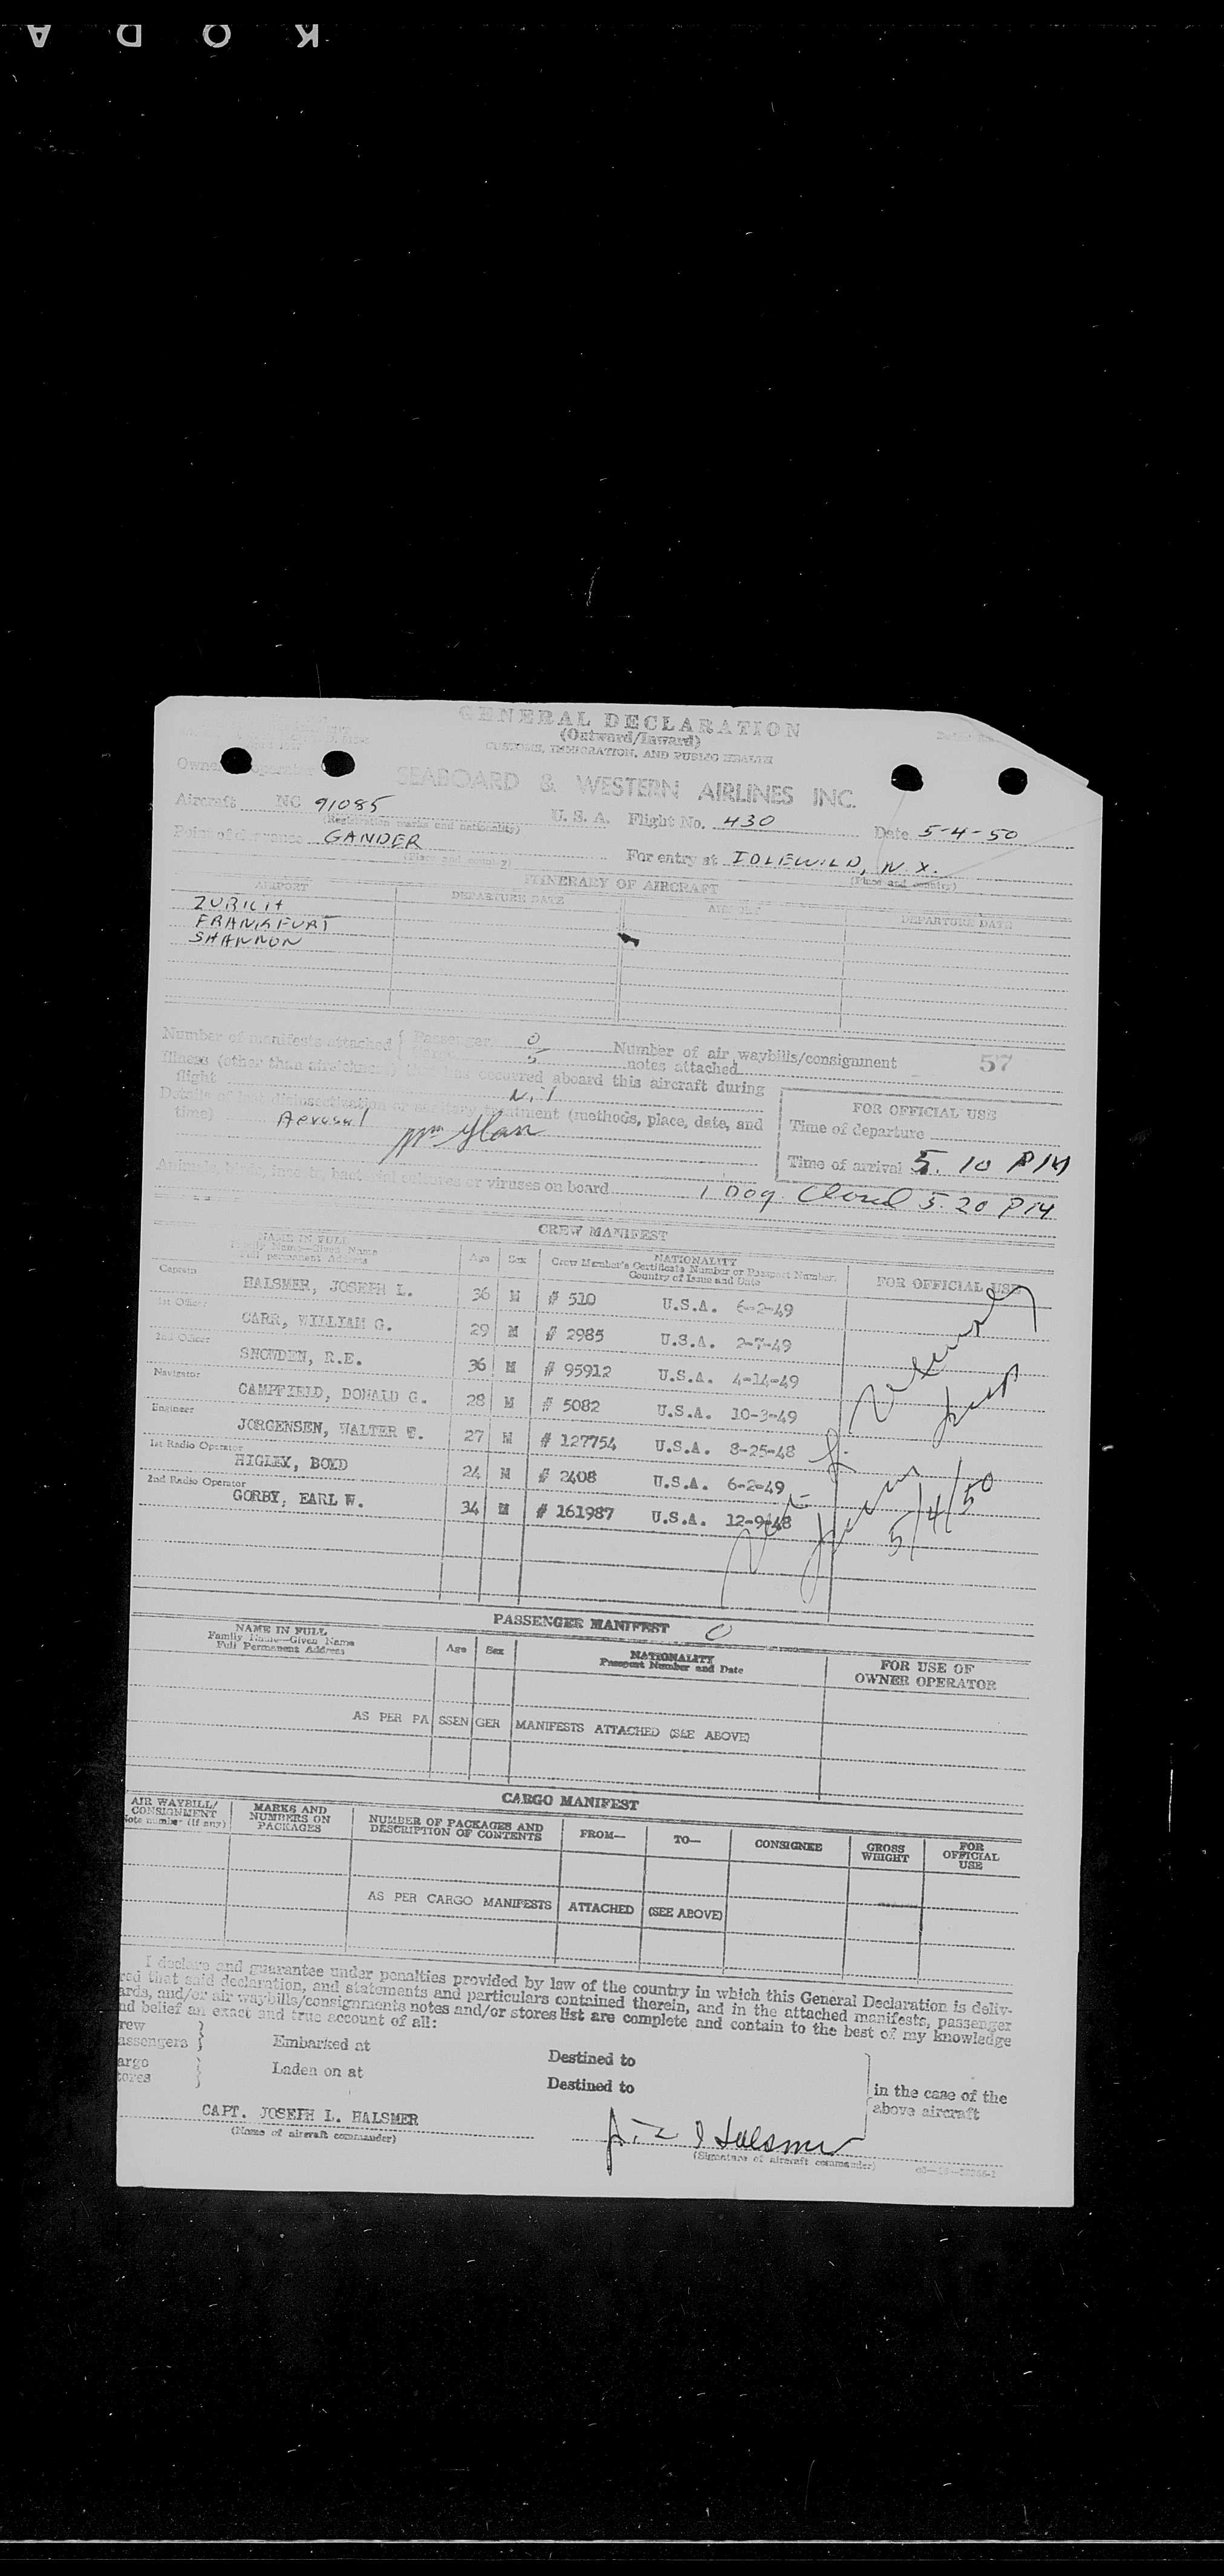 KODA
GENERAL DECLARATION
(Outward/Inward)
CUSTOMS, IMMIGRATION, AND PUBLIC HEALTH
Owner operator
SEABOARD & WESTERN AIRLINES INC.
Aircraft NC 91085 U.S.A. Flight No. 430 Date 5-4-50
(Registration marks and nationality)
Point of clearance GANDER For entry at IDLEWILD, N.Y.
(Place and country) (Place and country)
ITINERARY OF AIRCRAFT
AIRPORT DEPARTURE DATE AIRPORT DEPARTURE DATE
ZURICH
FRANKFURT
SHANNON
Number of manifests attached { Passenger 0 Number of air waybills/consignment
5 notes attached 57
Illness (other than airsickness) occurred aboard this aircraft during
flight Nil
Details of disinsectization or sanitary treatment (methods, place, date, and
time) Aerosol
FOR OFFICIAL USE
Time of departure
Time of arrival 5.10 PM
cultures or viruses on board 1 Dog Closed 5.20 PM
CREW MANIFEST
NAME IN FULL
Family Name—Given Name
Full Permanent Address
Age Sex NATIONALITY
Crew Member's Certificate Number or Passport Number
Country of Issue and Date
FOR OFFICIAL USE
Captain
HALSMER, JOSEPH L. 36 M # 510 U.S.A. 6-2-49
1st Officer
CARR, WILLIAM G. 29 M # 2985 U.S.A. 2-7-49
2nd Officer
SNOWDEN, R.E. 36 M # 95912 U.S.A. 4-14-49
Navigator
CAMPFIELD, DONALD G. 28 M # 5082 U.S.A. 10-3-49
Engineer
JORGENSEN, WALTER W. 27 M # 127754 U.S.A. 8-25-48
1st Radio Operator
HIGLEY, BOYD 24 M # 2408 U.S.A. 6-2-49
2nd Radio Operator
GORBY, EARL W. 34 M # 161987 U.S.A. 12-9-48
5/4/50
PASSENGER MANIFEST 0
NAME IN FULL
Family Name—Given Name
Full Permanent Address
Age Sex NATIONALITY
Passport Number and Date
FOR USE OF
OWNER OPERATOR
AS PER PASSENGER MANIFESTS ATTACHED (SEE ABOVE)
CARGO MANIFEST
AIR WAYBILL/
CONSIGNMENT
Note number (if any)
MARKS AND
NUMBERS ON
PACKAGES
NUMBER OF PACKAGES AND
DESCRIPTION OF CONTENTS
FROM— TO— CONSIGNEE
GROSS
WEIGHT
FOR
OFFICIAL
USE
AS PER CARGO MANIFESTS ATTACHED (SEE ABOVE)
I declare and guarantee under penalties provided by law of the country in which this General Declaration is deliv-
red that said declaration, and statements and particulars contained therein, and in the attached manifests, passenger
ards, and/or air waybills/consignments notes and/or stores list are complete and contain to the best of my knowledge
nd belief an exact and true account of all:
rew }
assengers } Embarked at Destined to
argo }
tores } Laden on at Destined to
in the case of the
above aircraft
CAPT. JOSEPH L. HALSMER
(Name of aircraft commander)
Halsmer
(Signature of aircraft commander)